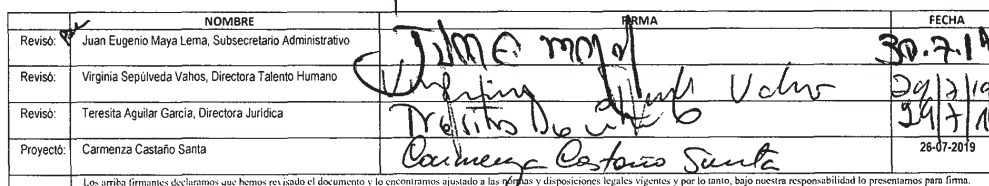 NOMBRE FIRMA FECHA
Revisó: Juan Eugenio Maya Lema, Subsecretario Administrativo 30.7.19
Revisó: Virginia Sepúlveda Vahos, Directora Talento Humano 29/7/19
Revisó: Teresita Aguilar García, Directora Jurídica 29/7/1
Proyectó: Carmenza Castaño Santa Carmenza Castaño Santa 26-07-2019
Los arriba firmantes declaramos que hemos revisado el documento y lo encontramos ajustado a las normas y disposiciones legales vigentes y por lo tanto, bajo nuestra responsabilidad lo presentamos para firma.